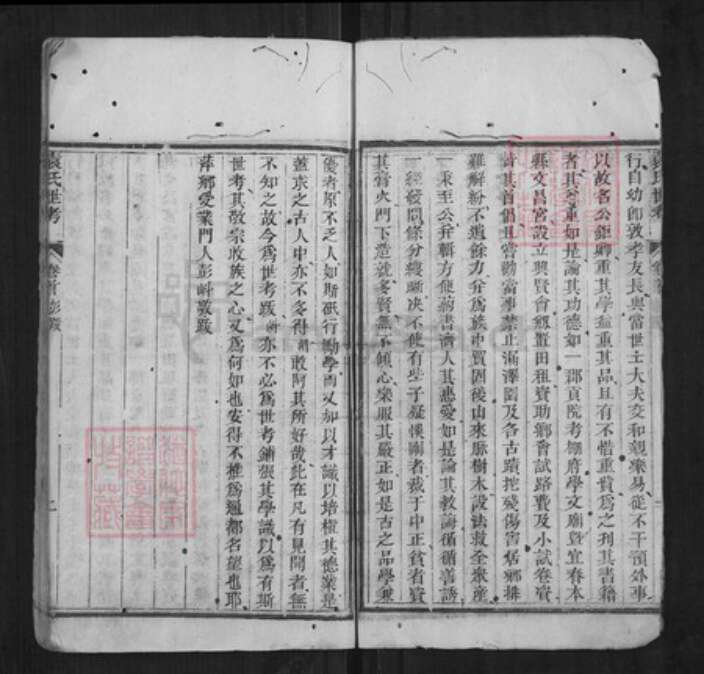 行自幼即敦孝友長與當世士大夫交和親樂易從不干預外事
以故名公鉅卿重其學益重其品且有不惜重貲為之刊其書籍
者其尊重如是論其功德如一郡貢院考棚府學文廟暨宜春本
縣文昌宮設立興賢會劔置田租資助鄉會試路費及小試卷資
皆其首倡且嘗勸當事禁止滿澤園及各古蹟挖殘傷害居鄉排
難解紛不遺餘力分為族中買回後山來脈樹木設法救全眾產
一秉至公弁輯方便蒭書濟人其惠愛如是論其教誨循循善誘
一經發問條分縷晰決不使有些子疑悞 者裁于中正貧者資
其膏火門下造就多賢無不傾心樂服其嚴正如是古之品學兼
優者原不乏人如斯砥行勵學而又加以才識以培植其德業是
蓋求之古人中亦不多得 敢阿其所好哉此在凡有見聞者無
不知之故今為世考跋 亦不必為世考鋪張其學識以為有斯
世考其敬宗收族之心又為何如也安得不推為通都名望也耶
萍鄉受業門人彭 敬跋
袁氏世考
卷首彭跋
二